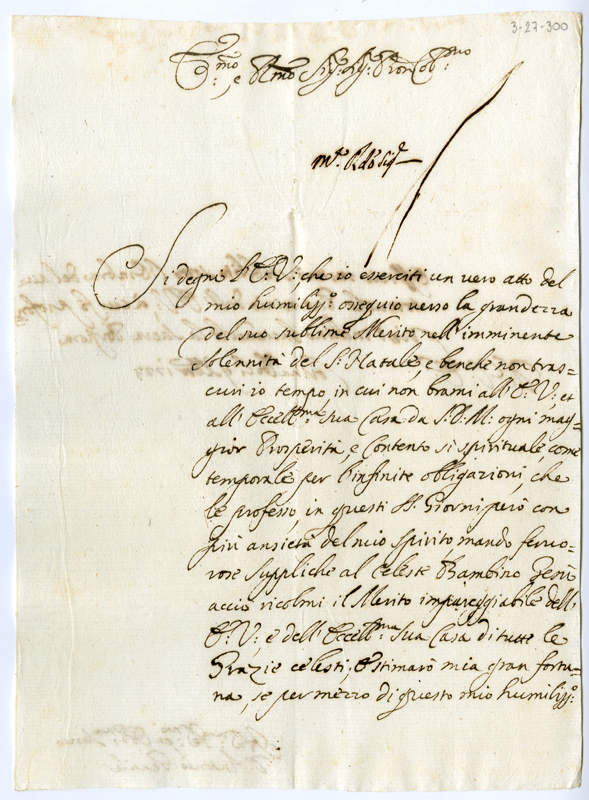 3-27-300
Em.mo e R.mo Sig.r Sig.r Pron Col.mo
Si degni l'E. V. che io eserciti un vero atto del
mio humiliss.o ossequio verso la grandezza
del suo sublime Merito nell'imminente
solennità del S. Natale, e benche non tras=
curi io tempo, in cui non brami all'E. V. et
all'Eccell.ma sua Casa da S. D. M. ogni mag=
gior Prosperità, e Contento si spirituale, come
temporale per l'infinite obligazioni, che
le professo, in questi SS. Giorni però con
più ansietà del mio spirito, mando fervo=
rose suppliche al Celeste Bambino Gesù
acciò ricolmi il Merito impareggiabile dell'
E. V. e dell'Eccell.ma sua Casa di tutte le
Grazie celesti; e stimarò mia gran fortu=
na, se per mezzo di questo mio humiliss.o